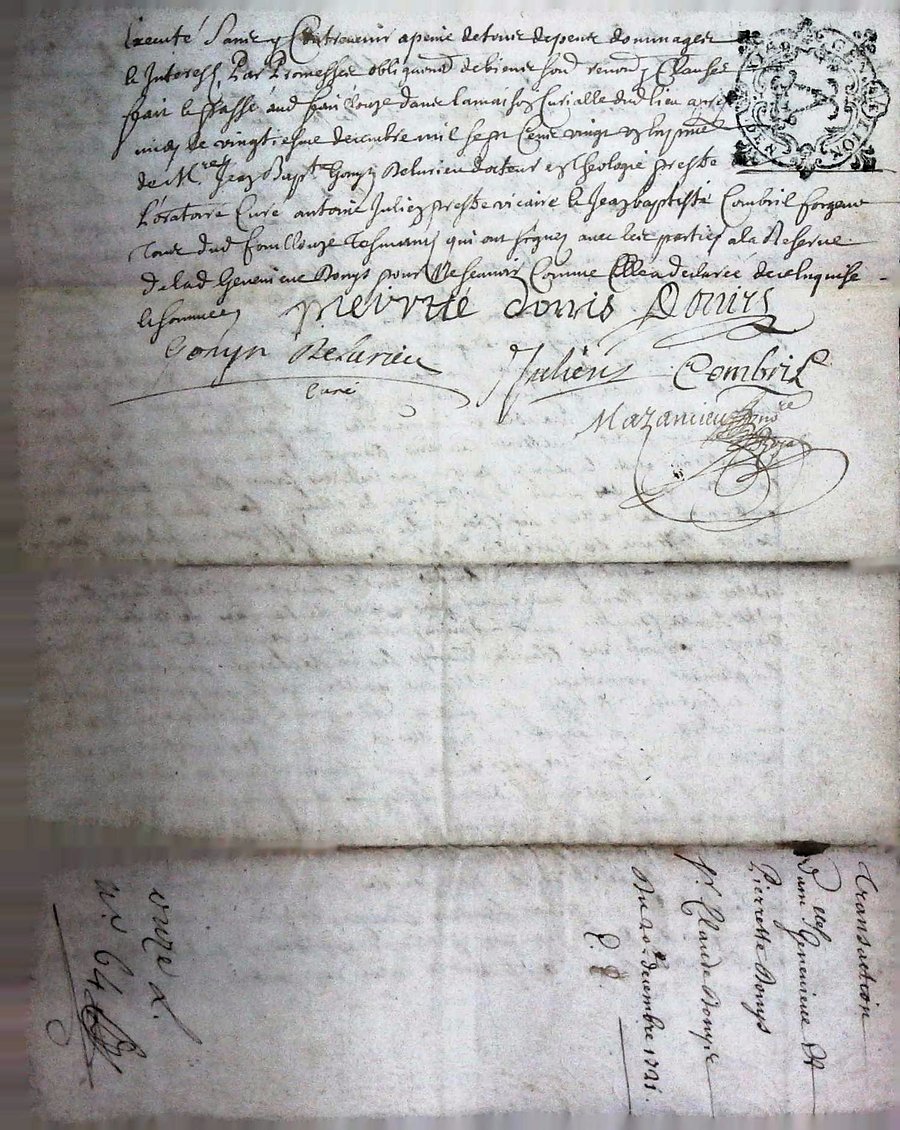 Executé Sans y Contrevenir a peine de tous depens dommages
le Interests, Par Promesses obligaons de biens soud renond, Clauses
fait le passé aud fouillouze dans la maison Curialle dud lieu apres
midy le vingtiesme decembre mil sept Cens vingt
de Mre Jean Bapt Gonyn Delurieu docteur en Theologie prestre
L'oratoire Curé antoine Julien prestre vicaire le Jean baptiste Combril
Tous dud fouillouze Tesmoins qui ont signez avec les parties a la Reserve
de lad Genevieve Donys pour ne sçavoir Comme Elle a declarée de ce Enquise
le sommée,
pierrete donis Donirs
Gonyn Delurieu
Curé
Julien
Combril
Mazanieu
GEN
Transaction
Dam.elles Genevieve Et
Pierrette Donys
Sr. Claude
Du 20e decembre 1721.
onze L.
n.o 64